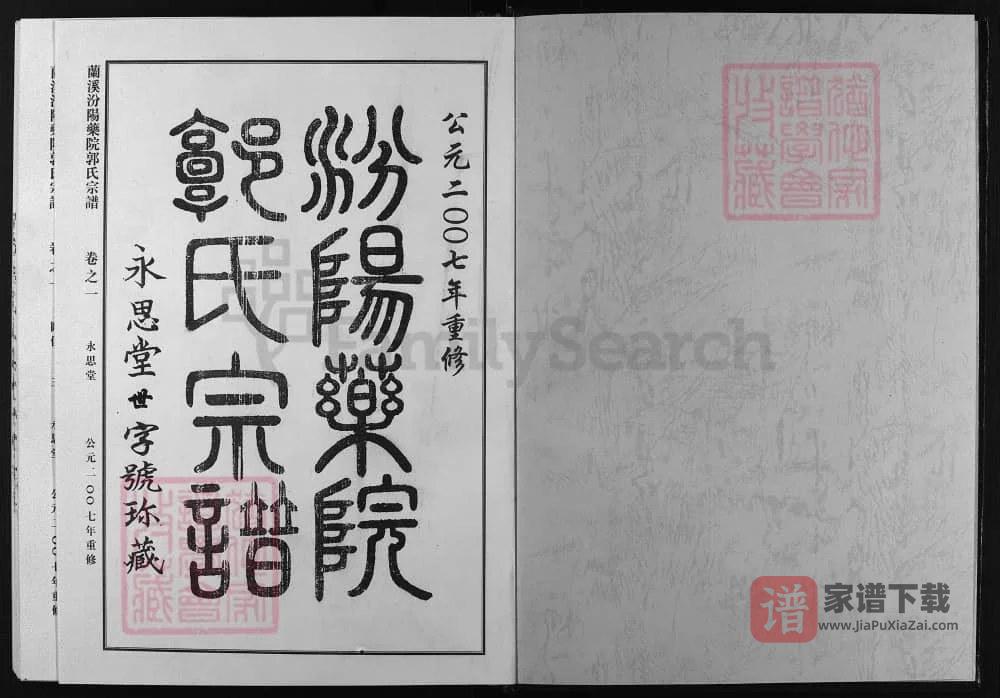 公元二〇〇七年重修
汾陽藥院
郭氏宗譜
永思堂世字號珎藏
蘭溪汾陽藥院郭氏宗譜 卷之一 永思堂 公元二〇〇七年重修
譜學會
收藏
FamilySearch
谱 家谱下载
www.JiaPuXiaZai.com